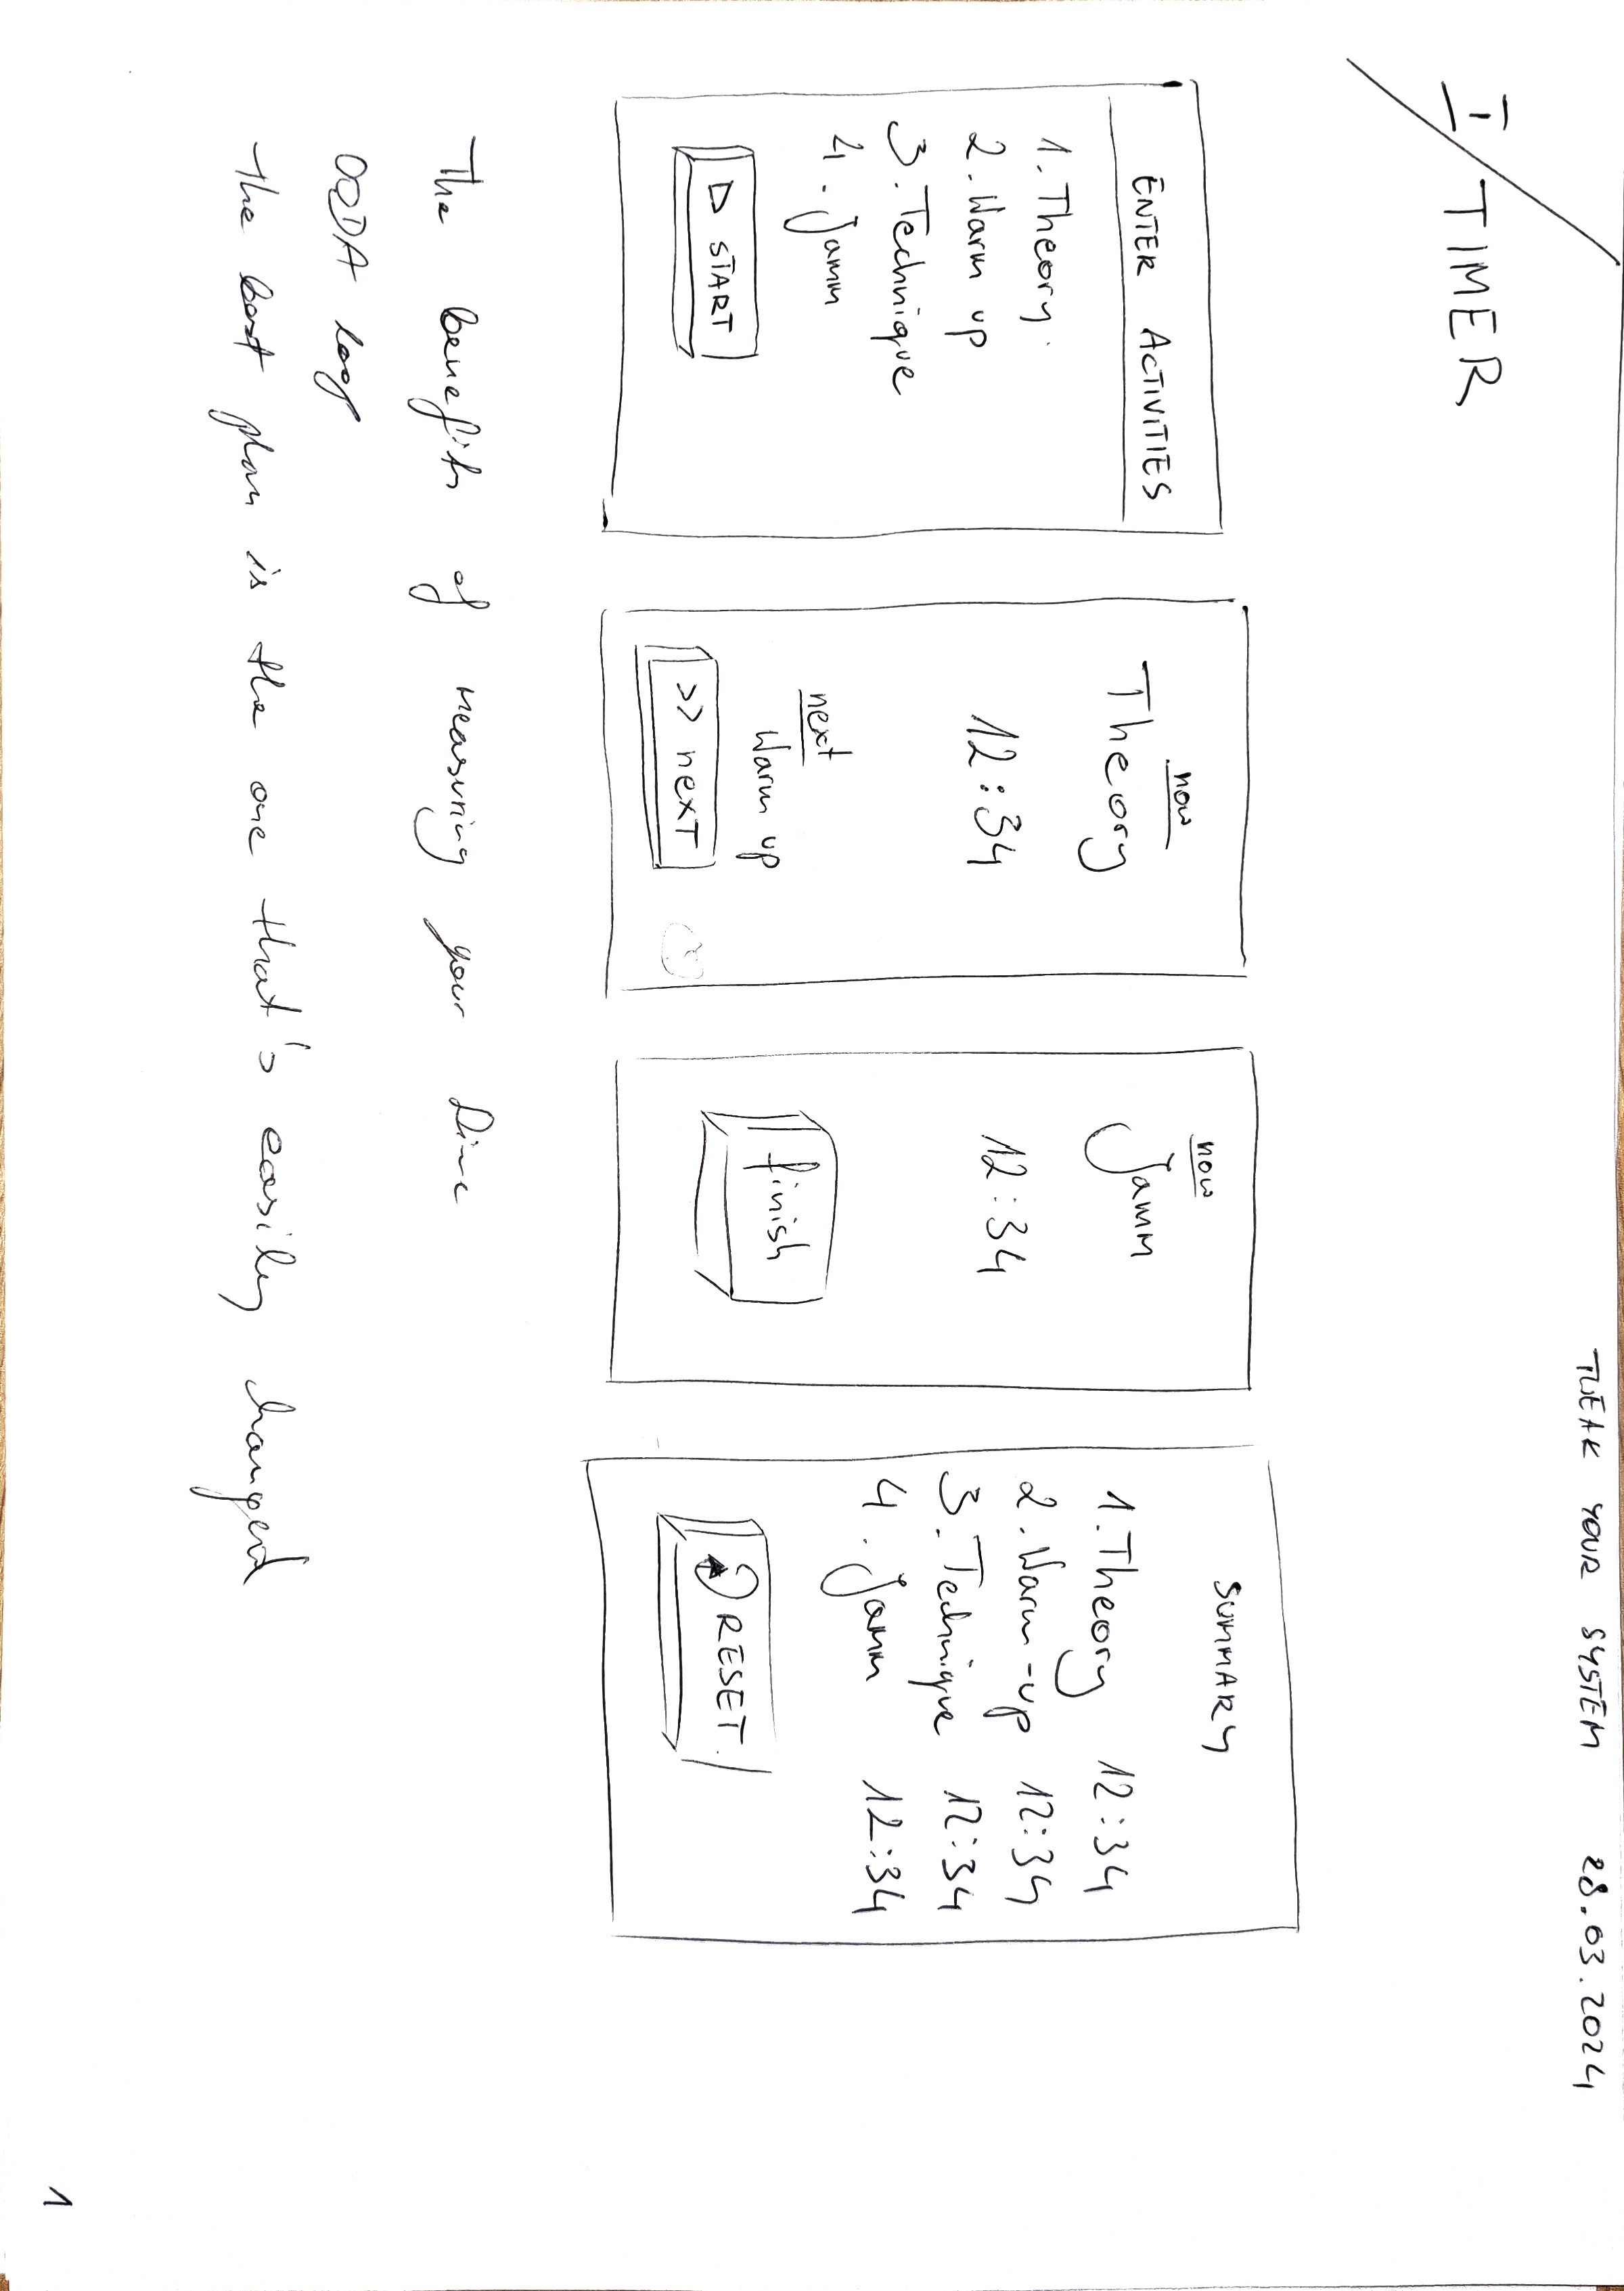 TWEAK YOUR SYSTEM 28.03.2024
I / TIMER
ENTER ACTIVITIES
1. Theory
2. Warm up
3. Technique
4. Jamm
START
now
Theory
12:34
next
Warm up
>> next
now
Jamm
12:34
finish
SUMMARY
1. Theory 12:34
2. Warm-up 12:34
3. Technique 12:34
4. Jamm 12:34
RESET
The benefits of measuring your time
OODA loop
The best plan is the one that's easily changed
1